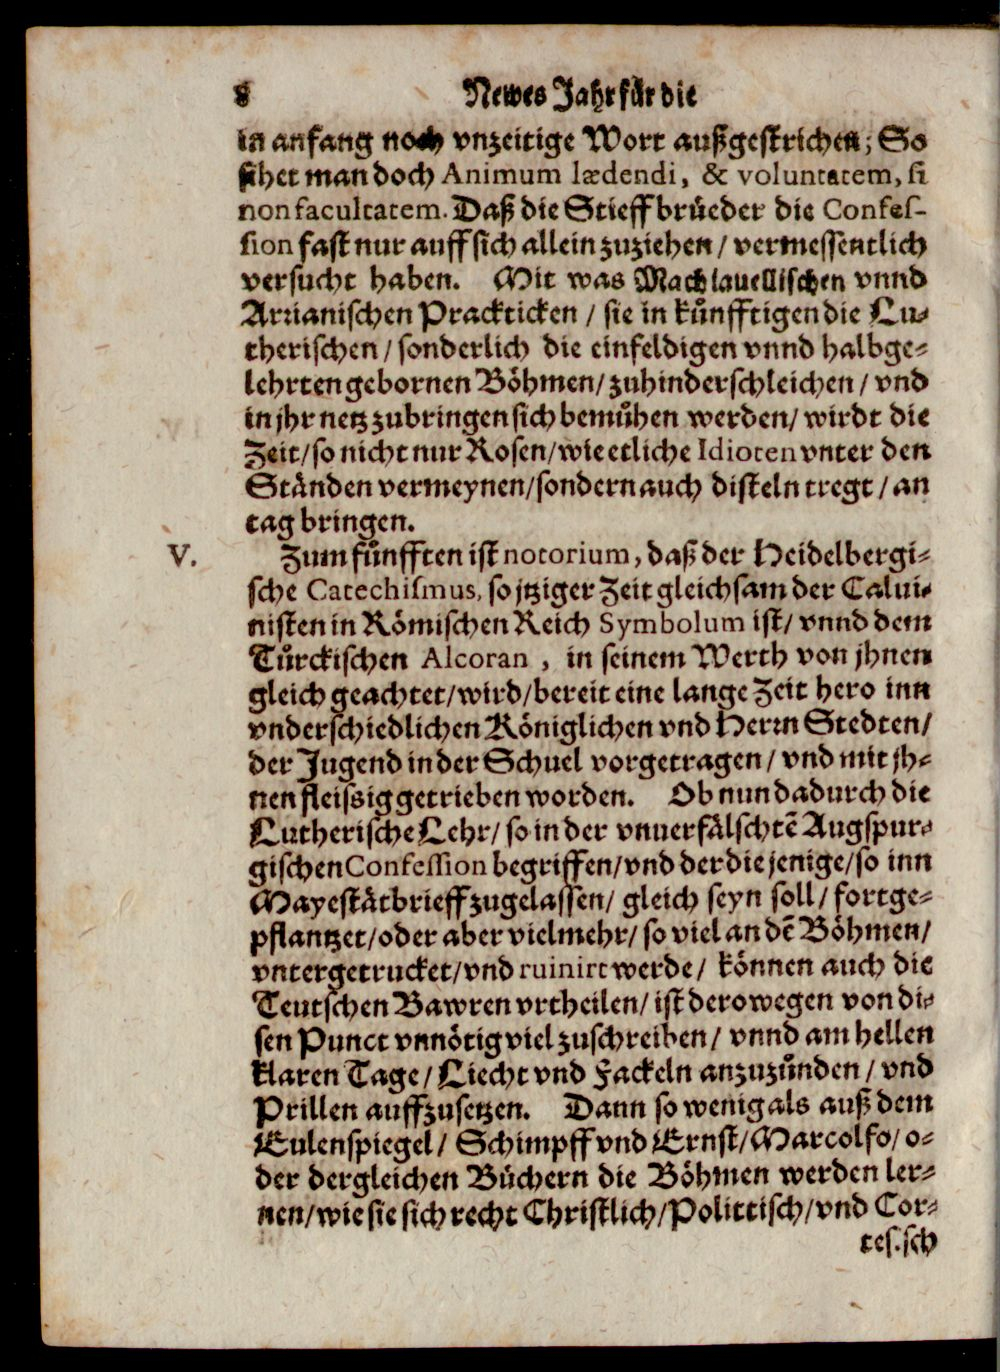 8 Newes Jahr für die
in anfang noch vnzeitige Wort außgestrichen; So
sihet man doch Animum lædendi, & voluntatem, si
non facultatem. Daß die Stieffbrüeder die Confes-
sion fast nur auff sich allein zuziehen / vermessentlich
versucht haben. Mit was Machiauellischen vnnd
Arrianischen Prackticken / sie in künfftigen die Lu-
therischen / sonderlich die einfeldigen vnnd halbge-
lehrten gebornen Böhmen / zuhinderschleichen / vnd
in jhr netz zubringen sich bemühen werden / wirdt die
Zeit / so nicht nur Rosen / wie etliche Idioten vnter den
Ständen vermeynen / sondern auch disteln tregt / an
tag bringen.
V. Zum fünfften ist notorium, daß der Heidelbergi-
sche Catechismus, so jtziger Zeit gleichsam der Calui-
nisten in Römischen Reich Symbolum ist / vnnd dem
Türckischen Alcoran , in seinem Werth von jhnen
gleich geachtet / wird / bereit eine lange Zeit hero inn
vnderschiedlichen Königlichen vnd Herrn Stedten /
der Jugend in der Schuel vorgetragen / vnd mit jh-
nen fleissig getrieben worden. Ob nun dadurch die
Lutherische Lehr / so in der vnuerfälschtẽ Augspur-
gischen Confession begriffen / vnd der die jenige / so inn
Mayestätbrieff zugelassen / gleich seyn soll / fortge-
pflantzet / oder aber vielmehr / so viel an dẽ Böhmen /
vntergetrucket / vnd ruinirt werde / können auch die
Teutschen Bawren vrtheilen / ist derowegen von di-
sen Punct vnnötig viel zuschreiben / vnnd am hellen
klaren Tage / Liecht vnd Fackeln anzuzünden / vnd
Prillen auffzusetzen. Dann so wenig als auß dem
Eulenspiegel / Schimpff vnd Ernst / Marcolfo / o-
der dergleichen Büchern die Böhmen werden ler-
nen / wie sie sich recht Christlich / Polittisch / vnd Cor-
tes.sch